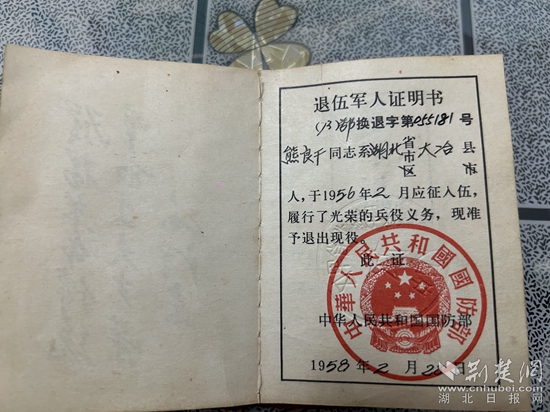 退伍军人证明书
换退字第055181号
熊良千同志系湖北省市区大冶县市
人，于1956年2月应征入伍，
履行了光荣的兵役义务，现准
予退出现役。
此证
中华人民共和国国防部
中華人民共和國國防部
1958年2月2日
荆楚网
www.cnhubei.com
湖北日报网